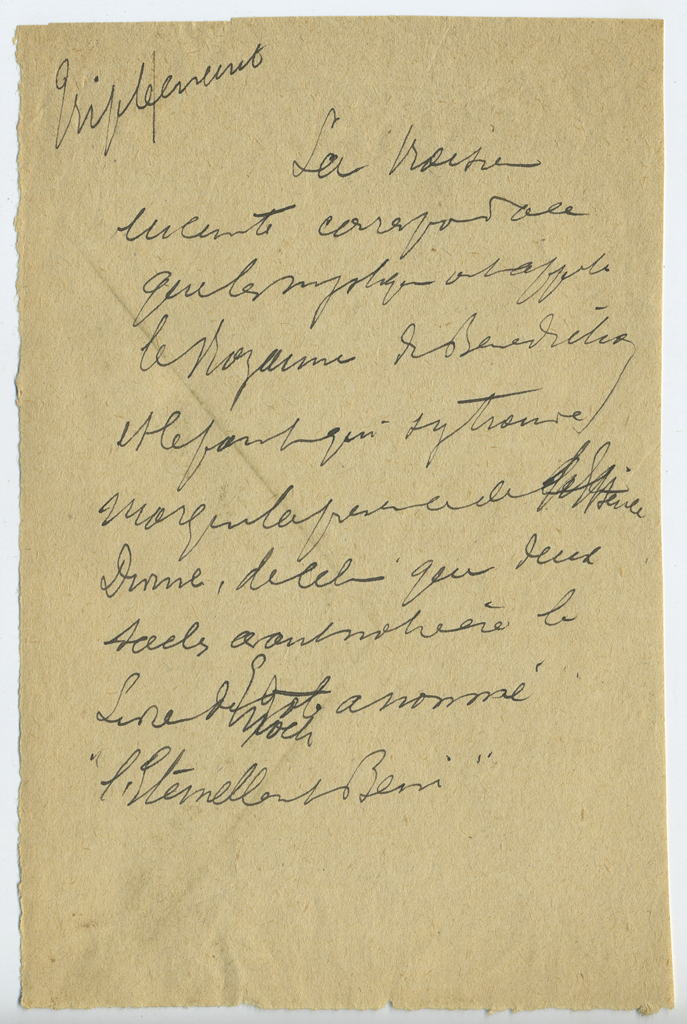 Triplement
La troisième
enceinte correspond à ce
que les mystiques ont appelé
le Royaume de Bénédiction
et le point qui s'y trouve
marque la présence de l'Essence
Divine, de celle que deux
siècles avant notre ère le
Livre d'Enoch a nommé
"l'Éternellement Béni"